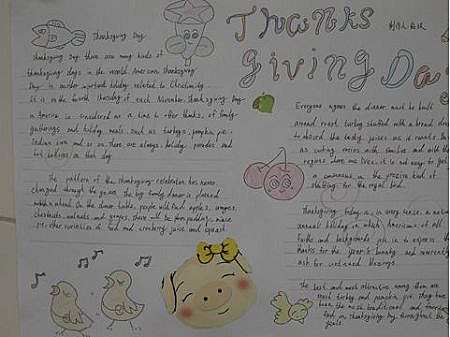 Thanks
giving Da
Thanksgiving Day
Thanksgiving there are many kinds of
thanksgiving days in the world. American thanksgiving
Day is another important holiday related to Christianity.
It is on the fourth Thursday of each November. Thanksgiving Day
in America is considered as a time to offer thanks, of family
gatherings and holiday meals, such as turkeys, pumpkin pie,
Indian corn and so on. There are always holiday parades and
on that day.
The pattern of the thanksgiving celebration has never
changed through the years. The big family dinner is planned
months ahead. On the dinner table, people will find apples, oranges,
chestnuts, walnuts and grapes. There will be plum pudding, mince
pie, other varieties of food and cranberry juice and squash.
Everyone agrees the dinner must be built
around roast turkey stuffed with a bread dressing
to absorb the tasty juices as it roasts. But
as cooking varies with families and with the
regions where one lives, it is not easy to get
a consensus on the precise kind of
stuffing for the royal bird.
Thanksgiving today is, in every sense, a national
annual holiday on which Americans of all
faiths and backgrounds join in to express their
thanks for the year's bounty and reverently
ask for continued blessings.
The best and most attractive among them are
roast turkey and pumpkin pie. They have
been the most traditional and favorite
food on Thanksgiving Day throughout the